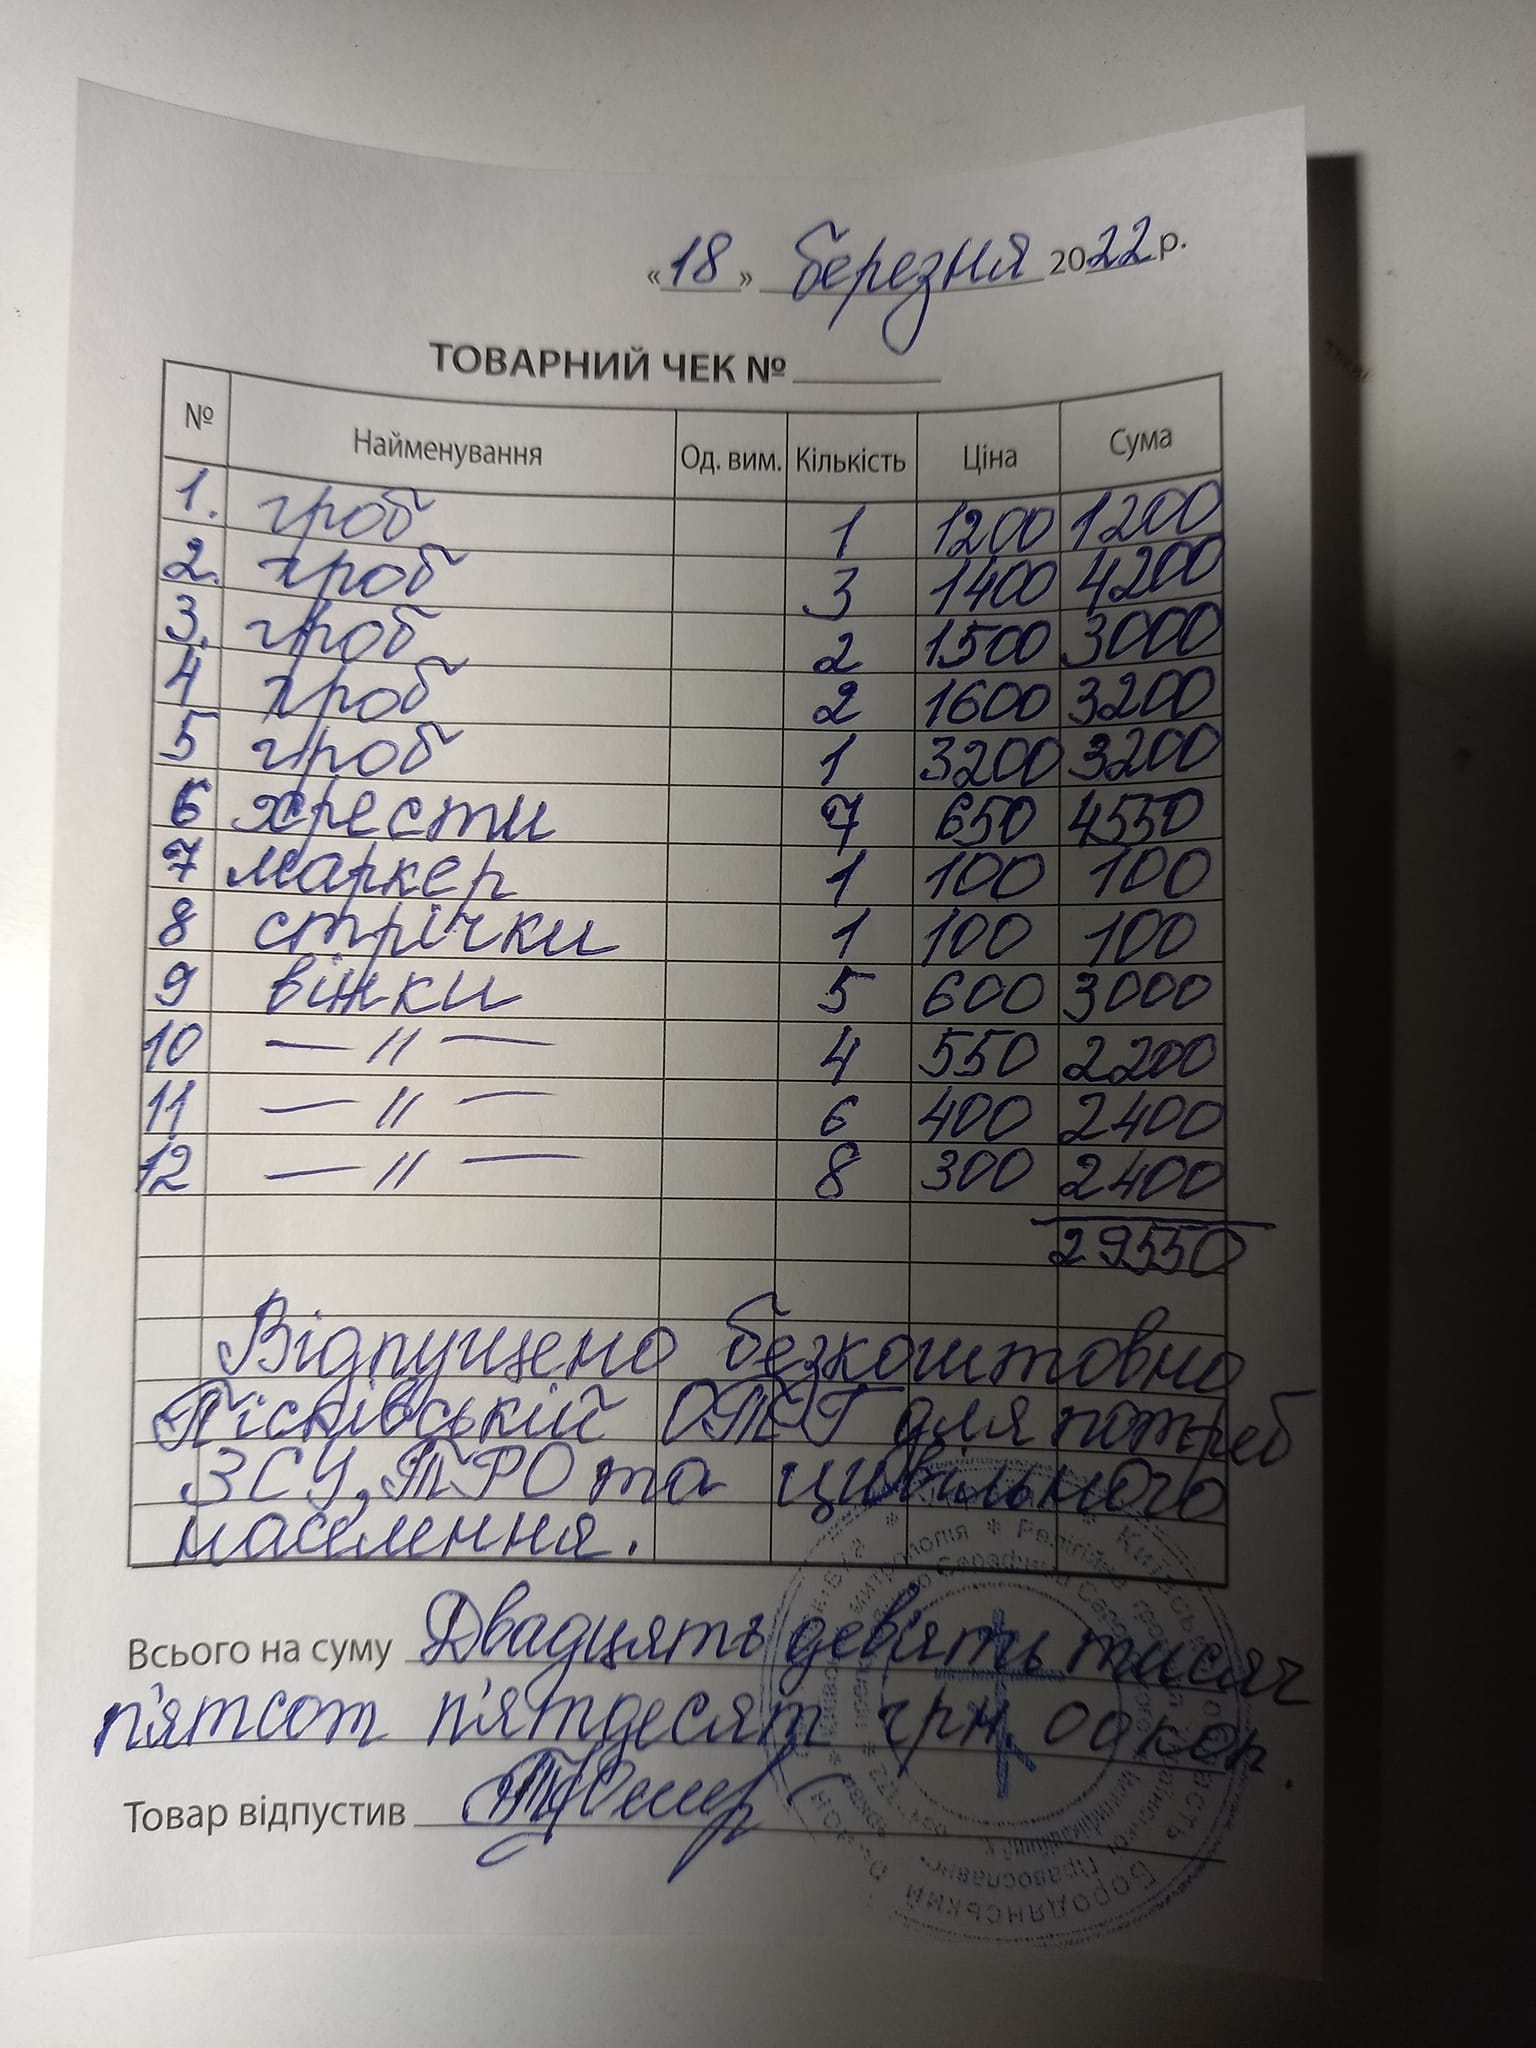 «18» березня 2022 р.
ТОВАРНИЙ ЧЕК №
№ Найменування Од. вим. Кількість Ціна Сума
1. гроб 1 1200 1200
2. гроб 3 1400 4200
3. гроб 2 1500 3000
4 гроб 2 1600 3200
5 гроб 1 3200 3200
6 хрести 7 650 4550
7 маркер 1 100 100
8 стрічки 1 100 100
9 вінки 5 600 3000
10 — // — 4 550 2200
11 — // — 6 400 2400
12 — // — 8 300 2400
29550
Відпущено безкоштовно
Пісківській ОТГ для потреб
ЗСУ, ТРО та цивільного
населення.
Всього на суму Двадцять дев'ять тисяч
п'ятсот п'ятдесят грн. 00 коп.
Товар відпустив
Бородянський